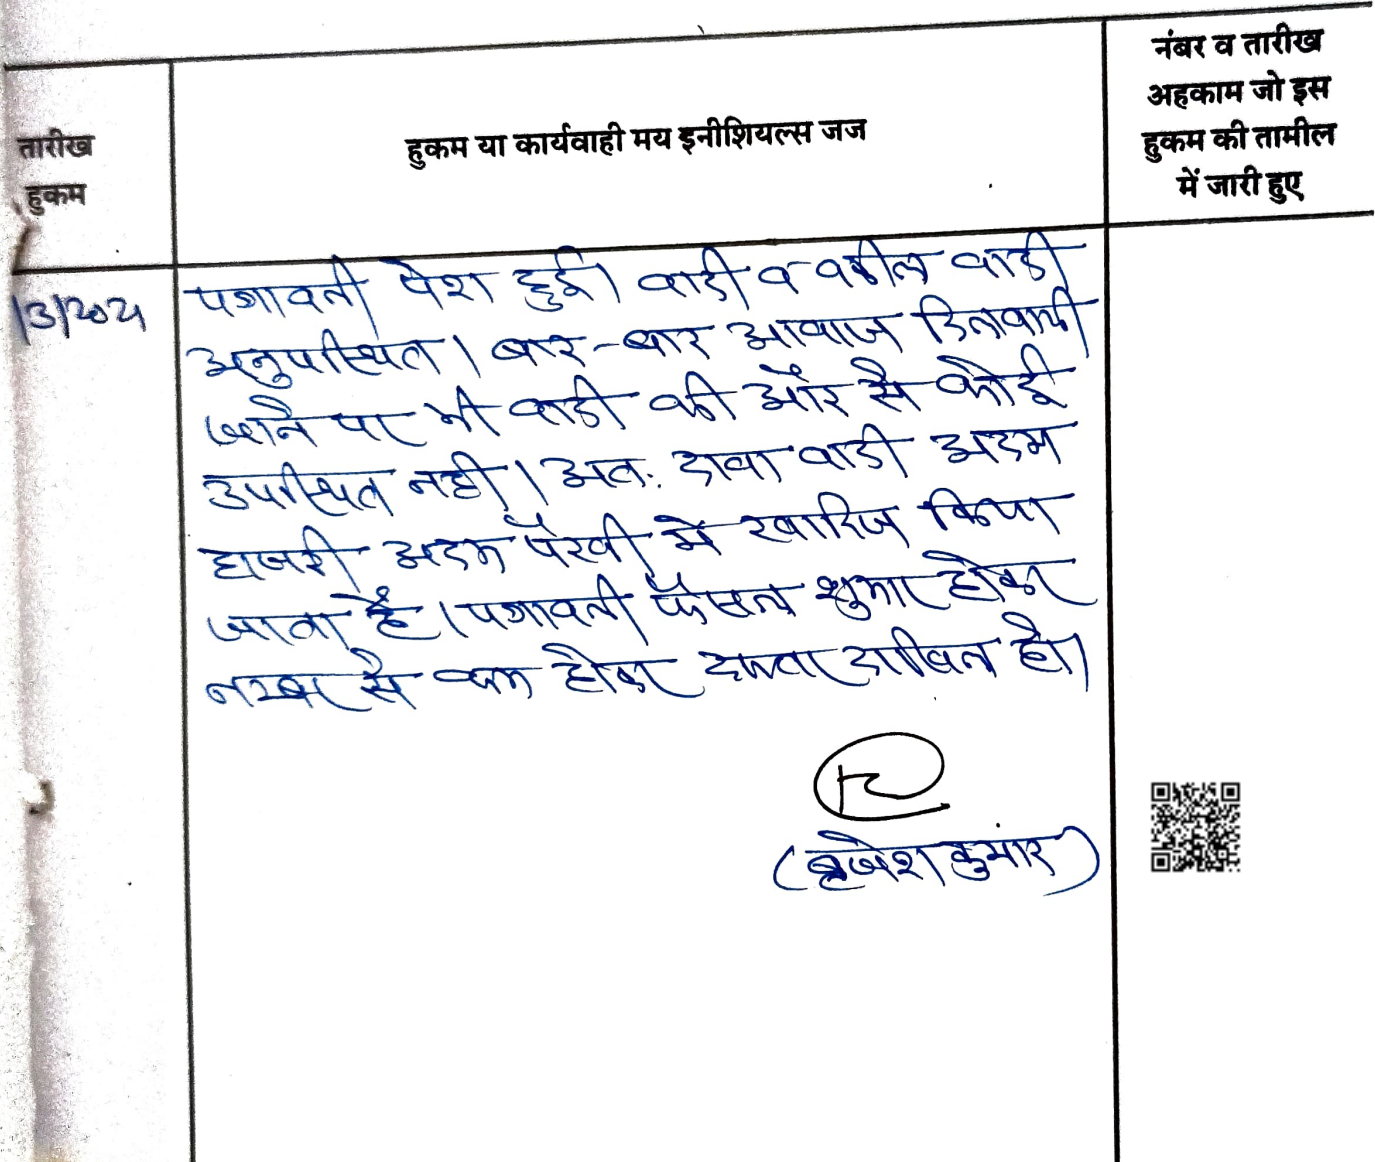 तारीख
हुकम
हुकम या कार्यवाही मय इनीशियल्स जज
नंबर व तारीख
अहकाम जो इस
हुकम की तामील
में जारी हुए
/3/2021
पत्रावली पेश हुई। वादी व वकील वादी
अनुपस्थित। बार-बार आवाज दिलवायी
जाने पर भी वादी की और से कोई
उपस्थित नही। अत: दावा वादी अदम
हाजरी अदम पैरवी मे खारिज किया
जाता है। पत्रावली फैसल शुमार होकर
नम्बर से कम होकर दफ्तर दाखिल हो।
(बृजेश कुमार)